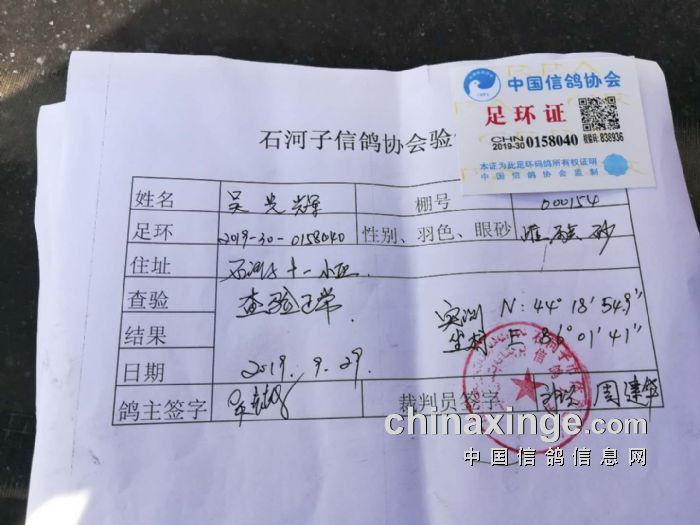 中国信鸽协会
足环证
CHN
2019-30 0158040 校验码: 838936
本证为此足环码鸽所有权证明
中国信鸽协会监制
石河子信鸽协会验
姓名 吴光辉 棚号 000154
足环 2019-30-0158040 性别、羽色、眼砂 雄 砂
住址 石河子十一小区.
查验 查验正常 实测 N: 44° 18' 54.9"
结果 坐标 E: 86° 01' 41"
日期 2019.9.29.
鸽主签字 裁判员签字 周建华
chinaxinge.com
中国信鸽信息网